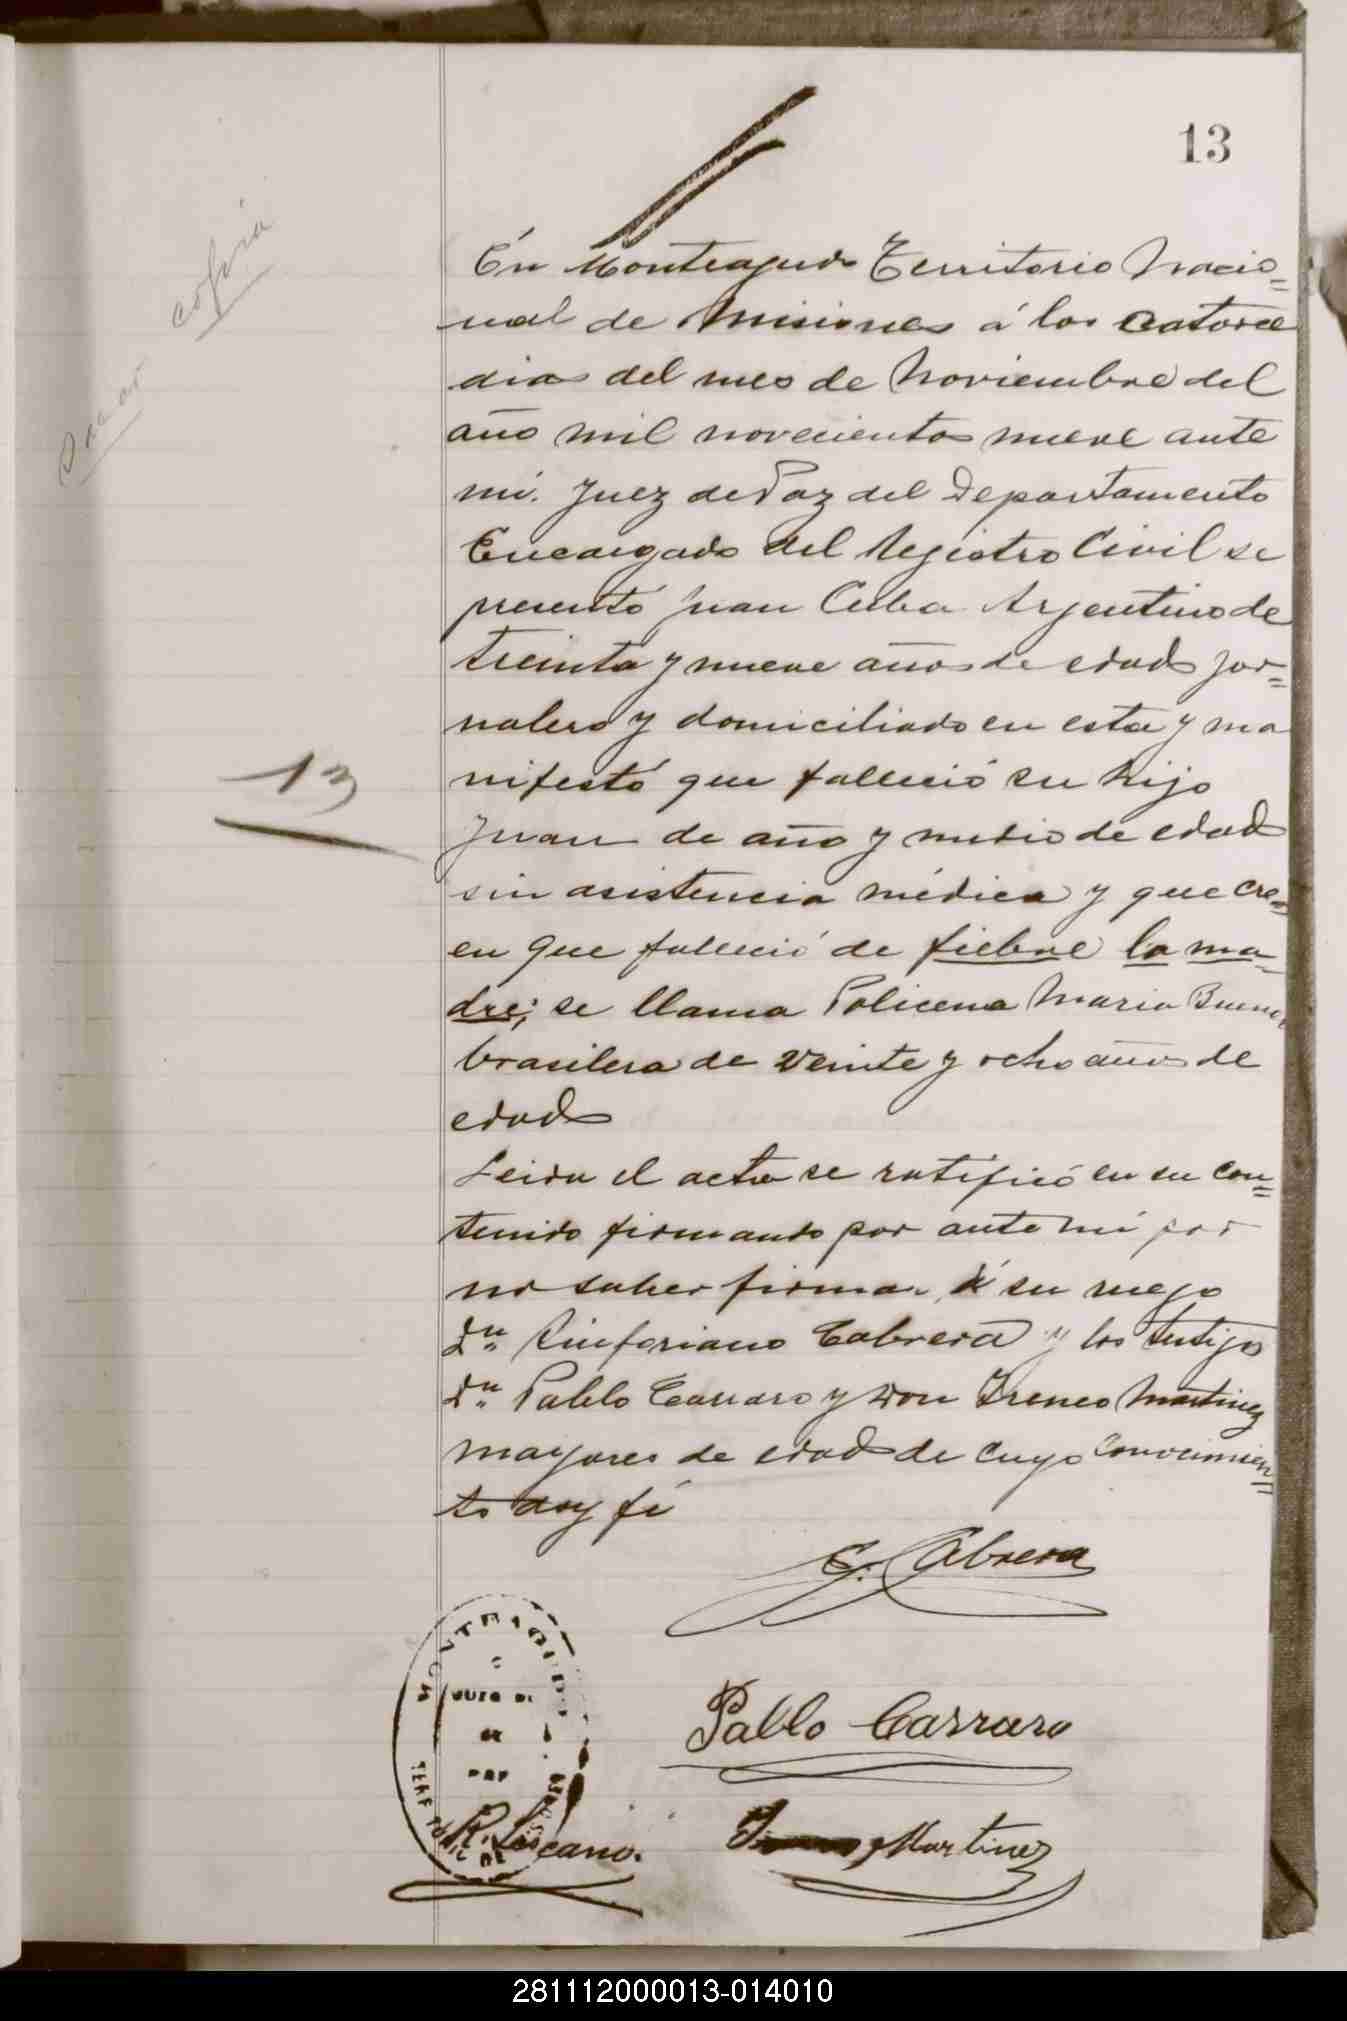 13
copia
Sacar
En Monteagudo Territorio Nacio=
nal de Misiones á los catorce
dias del mes de Noviembre del
año mil novecientos nueve ante
mi. Juez de Paz del Departamento
Encargado del Registro Civil se
presentó Juan Cuba Argentino de
treinta y nueve años de edad jor=
nalero y domiciliado en esta y ma
nifestó que falleció su hijo
13
Juan de año y medio de edad
sin asistencia médica y que cre=
en que falleció de fiebre la ma=
dre; se llama Policena Maria
brasilera de veinte y ocho años de
edad
Leida el acta se ratificó en su con=
tenido firmando por ante mi por
no saber firmar á su ruego
Dn Sinforiano Cabrera y los testigos
Dn Pablo Carraro y Don Ireneo Martinez
mayores de edad de cuyo conocimien=
to doy fé
S. Cabrera
MONTEAGUDO
JUZG DE
Pablo Carraro
R. Lescano.
Martinez
281112000013-014010